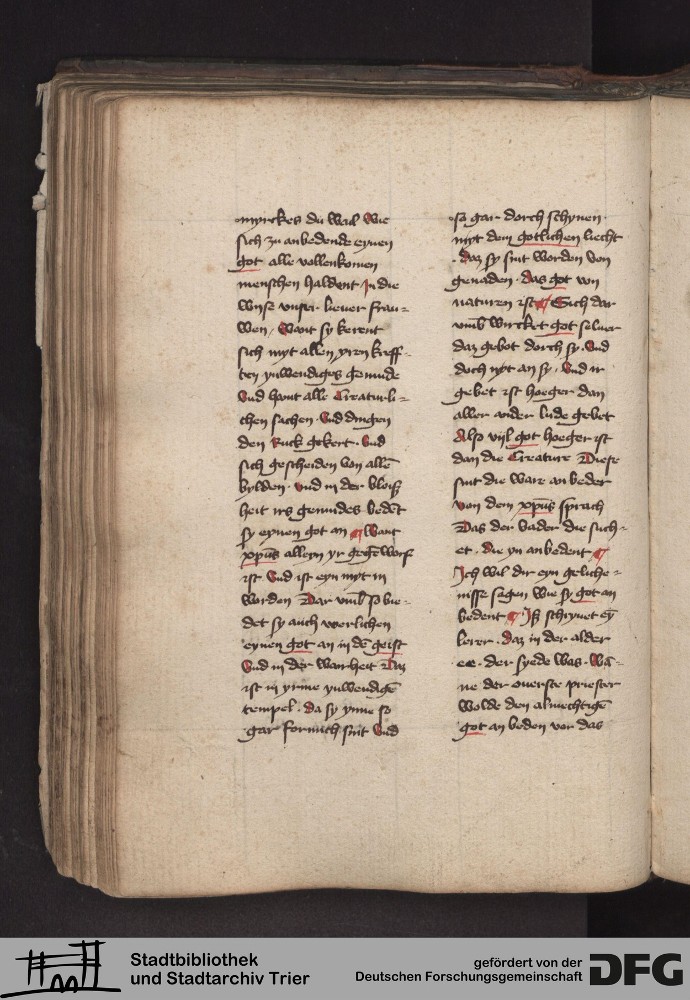 myrckes du wail wie
sich zu anbedende eynen
got alle vollenkomen
menschen haldent · In die
wyse vnser lieuer frau=
wen / Want sy kerent
sich myt allen yren kreff-
ten ynwendiges gemude
Vnd haint alle Creaturli=
chen sachen · Vnd dingen
den Ruck gekert · Vnd
sich gescheiden von allē
bylden · vnd in der bloiß
heit irs gemudes bedēt
sy eynen got an ¶ Want
xp̄us alleyn yr gegēworf
ist Vnd ist eyn myt in
worden Dar vmb so bie-
det sy auch werlichen
eynen got an in dē geist
Vnd in der warheit Daz
ist in yrme ynwendigē
tempel · da sy ynne so
gar sint Vnd
so gar dorch schynen ·
myt dem gotlichen liecht
· Daz sy sint worden von
genaden · das got von
naturen ist ¶ Such dar
vmb wircket got seluer
daz gebot dorch sy · Vnd
doch nyt an sy · Vnd ir
gebet ist hoeger dan
aller ander lude gebet
Also vijl got hoeger ist
dan die Creature Diese
sint die ware anbeder
von den xp̄us sprach
Das der vader die such-
et · die yn anbedent ¶
Ich wil dir eyn geliche=
nisse sagen wie sy got an
bedent ¶ Iß schryuet eȳ
lerer · daz in der alder
ee · der syede was · Wā=
ne der ouerste priester
wolde den almechtigē
got an beden vor das
Stadtbibliothek
und Stadtarchiv Trier
gefördert von der
Deutschen Forschungsgemeinschaft
DFG